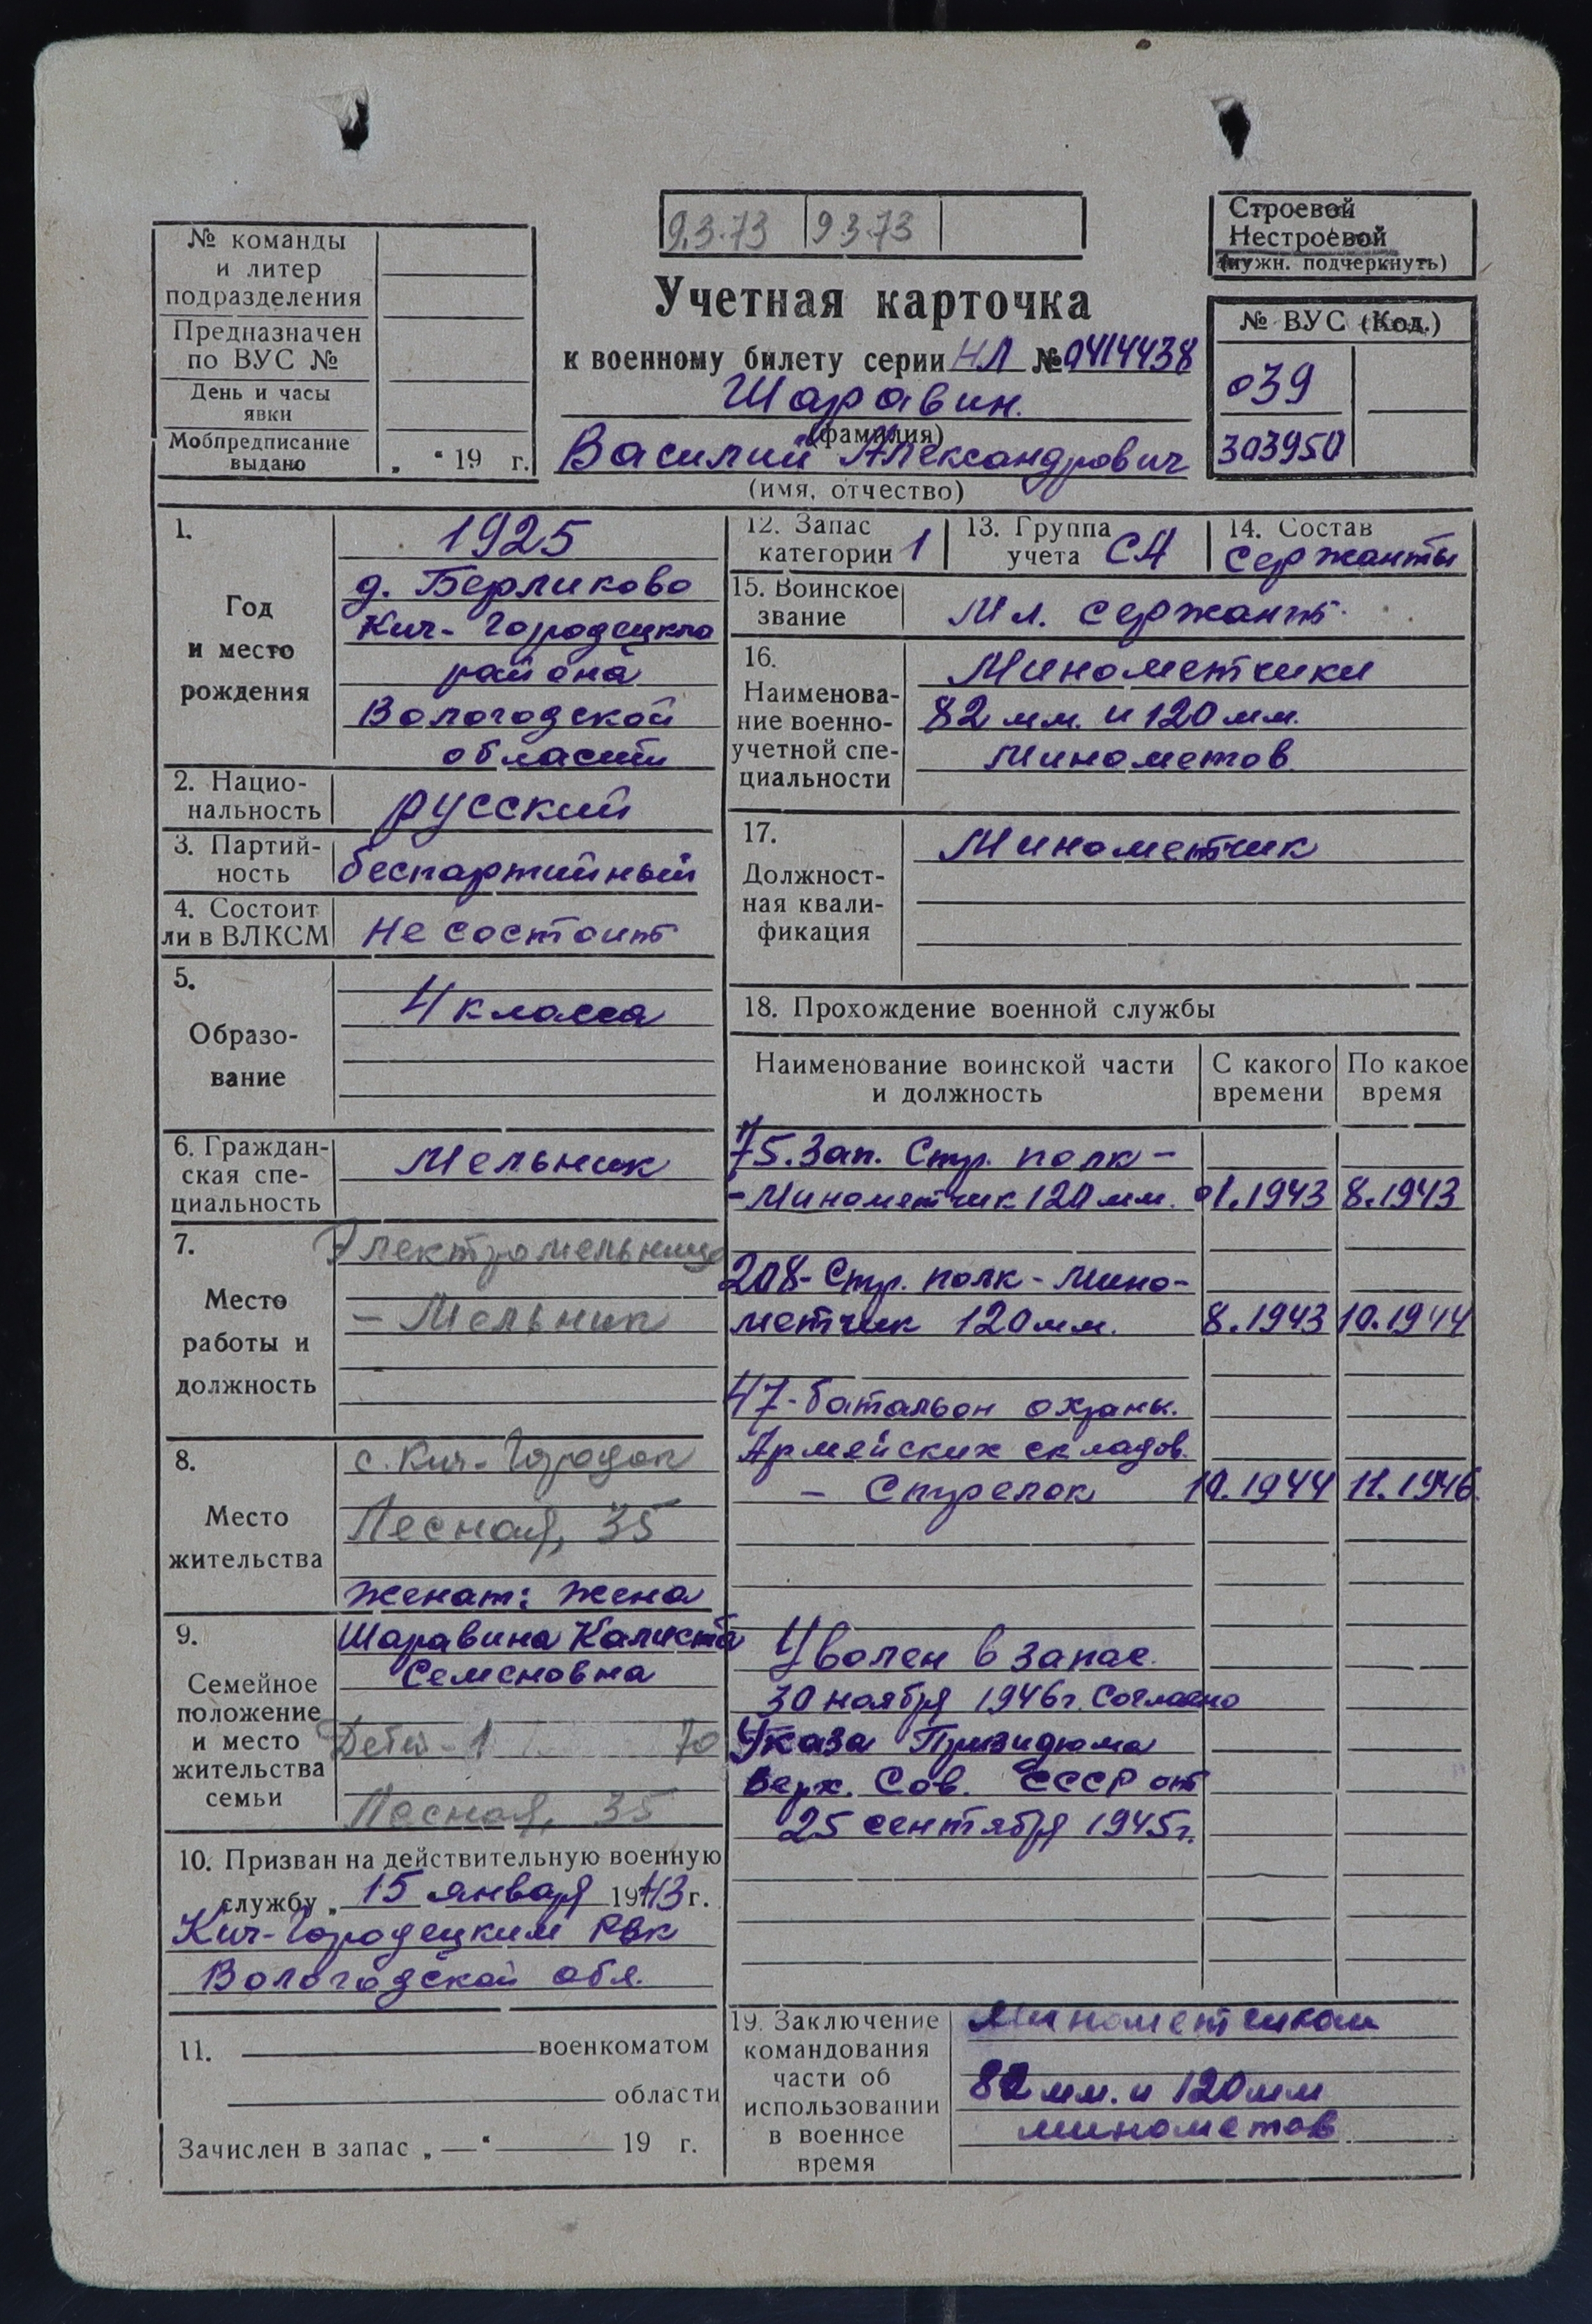 9.3.73 9373
Строевой
Нестроевой
(нужн. подчеркнуть)
№ команды
и литер
подразделения
Предназначен
по ВУС №
День и часы
явки
Мобпредписание
выдано
„ “ 19 г.
Учетная карточка
к военному билету серии НЛ № 0414438
Шаравин.
(фамилия)
Василий Александрович
(имя, отчество)
№ ВУС (Код.)
039
303950
1.
Год
и место
рождения
1925
д. Берликово
Кич-Городецкго
района
Вологодской
области
2. Нацио-
нальность
русский
3. Партий-
ность
беспартийный
4. Состоит
ли в ВЛКСМ
Не состоит
5.
Образо-
вание
4 класса
6. Граждан-
ская спе-
циальность
Мельник
7.
Место
работы и
должность
Электромельница
- Мельник
8.
Место
жительства
с. Кич-Городок
Лесная, 35
9.
Семейное
положение
и место
жительства
семьи
женат: жена
Шаравина Калиста
Семеновна
Дети - 1 70
Лесная, 35
10. Призван на действительную военную
службу „ 15 января 1943 г.
Кич-Городецким РВК
Вологодской обл.
11. военкоматом
области
Зачислен в запас „ — “ 19 г.
12. Запас
категории 1
13. Группа
учета СА
14. Состав
Сержанты
15. Воинское
звание
Мл. сержант.
16.
Наименова-
ние военно-
учетной спе-
циальности
Минометчики
82 мм. и 120 мм.
минометов
17.
Должност-
ная квали-
фикация
Минометчик
18. Прохождение военной службы
Наименование воинской части
и должность
С какого
времени
По какое
время
75. Зап. Стр. полк -
- Минометчик 120 мм. 01.1943 8.1943
208- Стр. полк - мино-
метчик 120 мм. 8.1943 10.1944
47- батальон охраны.
Армейских складов.
- Стрелок 10.1944 11.1946
Уволен в запас.
30 ноября 1946 г. Согласно
Указа Призидюма
Верх. Сов. СССР от
25 сентября 1945 г.
19. Заключение
командования
части об
использовании
в военное
время
Минометчиком
82 мм. и 120 мм
минометов